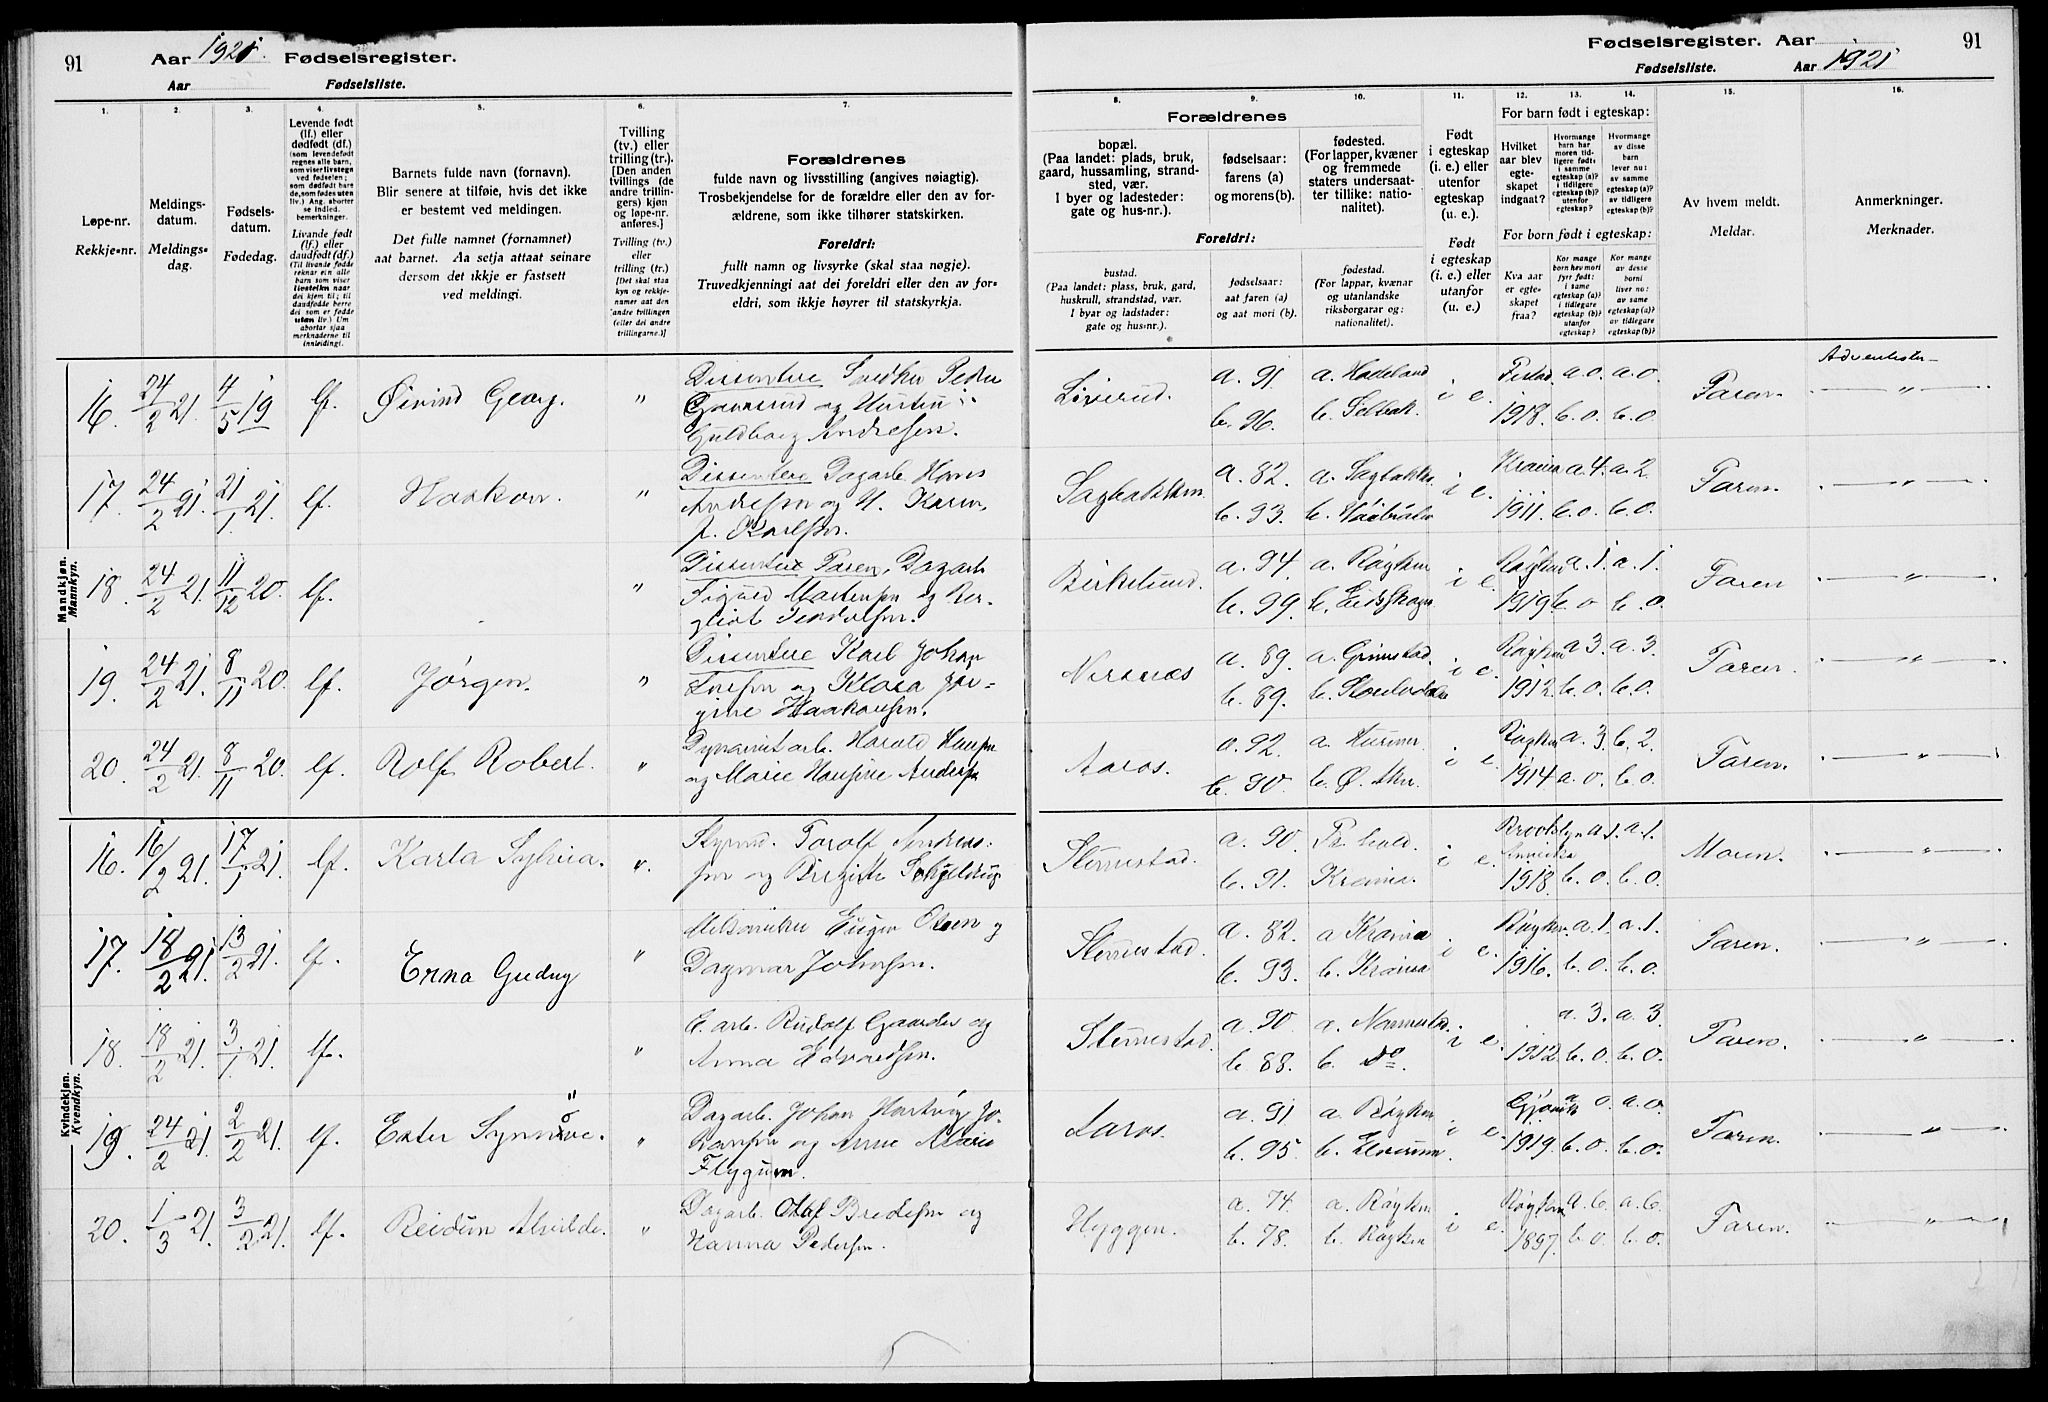 91
Aar 1921. Fødselsregister.
Aar Fødselsliste.
1. 2. 3. 4. 5. 6. 7.
Løpe-nr.
Rekkje-nr.
Meldings-
datum.
Meldings-
dag.
Fødsels-
datum.
Fødedag.
Levende født
(lf.) eller
dødfødt (df.)
(som levendefødt
regnes alle barn,
som viser livstegn
ved fødselen;
som dødfødt bare
de, som fødes uten
liv.) Ang. aborter
se indled.
bemerkninger.
Livande født
(lf.) eller
daudfødt (df.)
(Til livande fødde
reknar ein alle
barn som viser
livsteikn naar
dei kjem til; til
daudfødde berre
dei som er fødde
utan liv.) Um
abortar sjaa
merknaderne til
innleidingi.
Barnets fulde navn (fornavn).
Blir senere at tilføie, hvis det ikke
er bestemt ved meldingen.
Det fulle namnet (fornamnet)
aat barnet. Aa setja attaat seinare
dersom det ikkje er fastsett
ved meldingi.
Tvilling
(tv.) eller
trilling (tr.).
[Den anden
tvillings (de
andre trillin-
gers) kjøn
og løpe-nr.
anføres.]
Tvilling (tv.)
eller
trilling (tr.)
[Det skal staa
kyn og rekkje-
numer aat den
andre tvillingen
(eller dei andre
trillingarne.)]
Forældrenes
fulde navn og livsstilling (angives nøiagtig).
Trosbekjendelse for de forældre eller den av for-
ældrene, som ikke tilhører statskirken.
Foreldri:
fullt namn og livsyrke (skal staa nøgje).
Truvedkjenningi aat dei foreldri eller den av for-
eldri, som ikkje høyrer til statskyrkja.
Mandkjøn.
Mannkyn.
16. 24/2 21. 4/5 19 lf. Øivind Georg. " Dissentere Snedker Peder
og
Guldborg Andresen.
17. 24/2 21. 21/1 21. lf. Haakon. " Dissentere Dagarb. Hans
Andresen og H. Karen,
f. Karlsen.
18. 24/2 21. 11/12 20. lf. " Dissentere Faren, Dagarb
Sigurd Martinsen og Ber-
gliot
19. 24/2 21. 8/11 20. lf. Jørgen. " Dissentere Karl Johan
og Klara Jør-
gine Haakonsen.
20. 24/2 21. 8/11 20. lf. Rolf Robert. " Dynamitarb. Harald Hansen
og Marie Hansine Anders
Kvindekjøn.
Kvendkyn.
16. 16/2 21. 17/1 21. lf. Karla Sylvia. ". Styrmd. Torolf Andreas-
sen og Birgith Schjeldrup
17. 18/2 21. 13/2 21. lf. Erna Gudny " Eugen Olsen og
Dagmar Johnsen.
18. 18/2 21. 3/1 21. lf. " E. arb. Rudolf Gaarder og
Anna Edvardsen.
19. 24/2 21. 2/2 21. lf. Ester Synnøve. " Dagarb. Johan Hartvig Jo-
hansen og Anne Marie
Flygum.
20. 1/3 21. 3/2 21. lf. Reidun Alvilde. " Dagarb. Olaf Bredesen og
Hanna Pedersen.
Fødselsregister. Aar 91
Fødselsliste. Aar 1921
8. 9. 10. 11. 12. 13. 14. 15. 16.
Forældrenes
bopæl.
(Paa landet: plads, bruk,
gaard, hussamling, strand-
sted, vær.
I byer og ladesteder:
gate og hus-nr.).
fødselsaar:
farens (a)
og morens (b).
fødested.
(For lapper, kvæner
og fremmede
staters undersaat-
ter tillike: natio-
nalitet).
Foreldri:
bustad.
(Paa landet: plass, bruk, gard,
huskrull, strandstad, vær.
I byar og ladstader:
gate og hus-nr.).
fødselsaar:
aat faren (a)
og aat mori (b).
fødestad.
(For lappar, kvænar
og utanlandske
riksborgarar og:
nationalitet).
Født
i egteskap
(i. e.) eller
utenfor
egteskap
(u. e.).
Født
i egteskap
(i. e.) eller
utanfor
(u. e.)
For barn født i egteskap:
Hvilket
aar blev
egte-
skapet
indgaat?
Hvormange
barn har
moren tid-
ligere født:
i samme
egteskap (a)?
i tidligere
egteskap (b)?
utenfor
egteskap?
Hvormange
av disse
barn
lever nu:
av samme
egteskap (a)?
av tidligere
egteskap (b)?
For born født i egteskap:
Kva aar
er egte-
skapet
fraa?
Kor mange
born hev mori
fyrr født:
i same
egteskap (a)?
i tidlegare
egteskap (b)?
utanfor
egteskap?
Kor mange
av desse
borni
liver no:
av same
egteskap (a)?
av tidlegare
egteskap (b)?
Av hvem meldt.
Meldar.
Anmerkninger.
Merknader.
Liverud. a. 91. b. 96. a. Hadeland b. Selbak. i e. 1918. a.0. b.0. a.0. b.0. Faren. Adventister "
Sagbakken a. 82. b. 93. a. Sagbakken b. i e. Krania 1911. a.4. b.0. a.2. b.0. Faren. "
Birkelund. a. 94. b. 99. a. Røyken b. Eidskogen i e. Røyken 1919. a.1. b.0 a.1. b.0. Faren "
Nersnæs a. 89. b. 89. a. Grimstad. b. i e. Røyken 1912. a 3. b.0. a. 3. b.0. Faren. "
Aaros. a. 92. b. 90. a. Hurum. b. Ø. Aker. i e. Røyken 1914. a. 3. a. 0. b. 2. b.0. Faren. "
Slemmestad. a. 90. b. 91. Fr.hald. Krania. i e. Brooklyn Amerika 1918. a 1. b. 0. a. 1. b. 0. Moren. "
Slemmestad. a. 82. b. 93. a Krania b. Krania i e. Røyken. 1916. a.1. b.0. a.1. b.0. Faren. "
Slemmestad. a. 90. b. 88. a. b. do. i e. 1912. a. 3. b. 0. a. 3. b. 0. Faren. "
Aaros. a. 91 b. 95. a. Røyken b. Elverum. i e. Gjøvik 1919. a 0. b. 0. a. 0. b. 0. Faren. "
Hyggen. a. 74. b. 78. a. Røyken b. Røyken i e. Røyken 1897. a. 6. b. 0. a. 6. b. 0. Faren. "